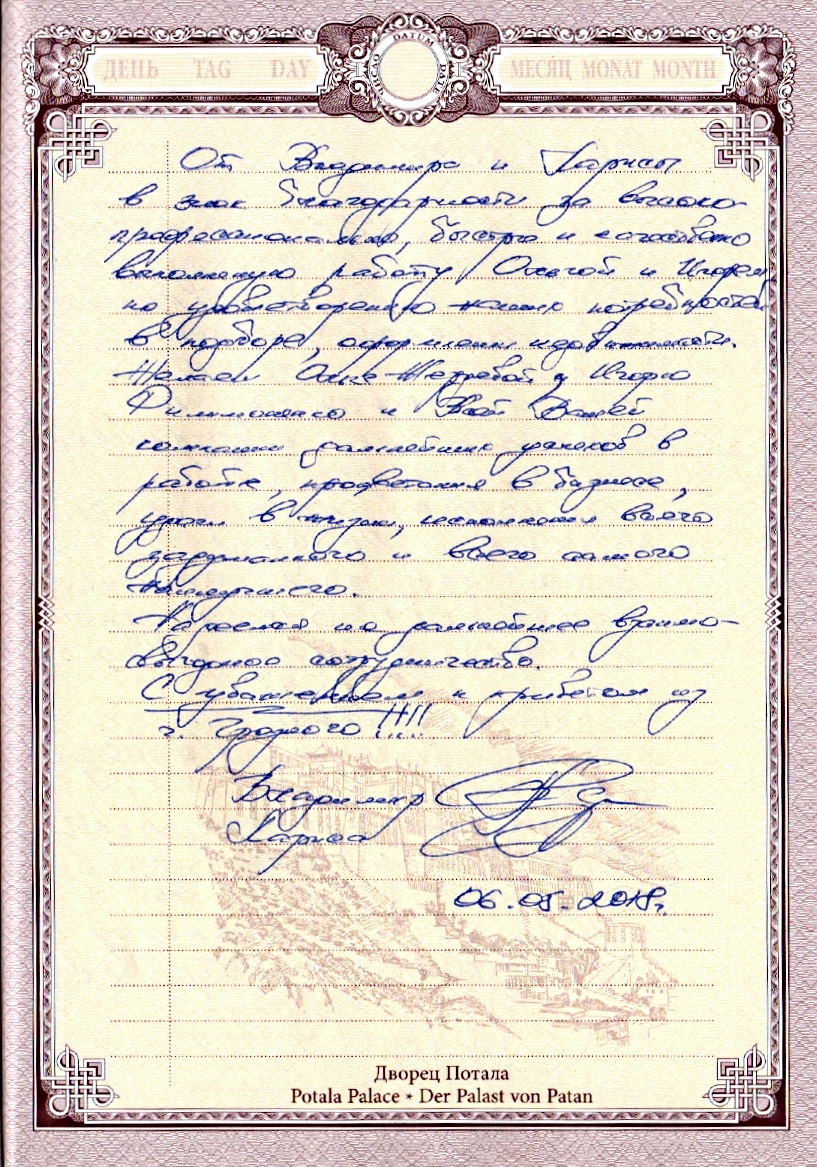 ДЕНЬ TAG DAY
ЧИСЛО DATUM DATE
МЕСЯЦ MONAT MONTH
От Владимира и Ларисы
в знак благодарности за высоко-
профессионально, быстро и
выполненную работу Ольгой и Игорем
по удовлетворению наших потребностей
в подборе, оформлении недвижимости.
Желаем Ольге и Игорю
и Вашей
компании дальнейших успехов в
работе, процветания в бизнесе,
удачи в жизни, исполнения всего
задуманного и всего самого
наилучшего.
Надеемся на дальнейшее взаимо-
выгодное сотрудничество.
С уважением и приветом из
г. Грозного !!!!
Владимир
Лариса
06.05.2018г.
Дворец Потала
Potala Palace * Der Palast von Patan